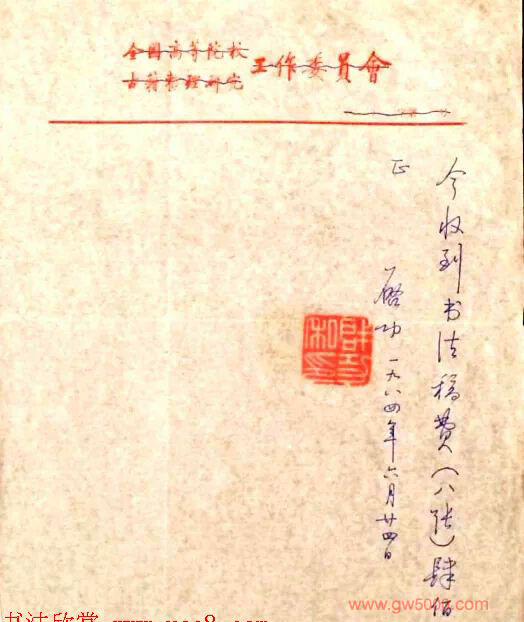 全国高等院校
古籍整理研究
工作委員會
今收到书法稿费（八张）肆佰
正
启功 一九八四年六月廿四日
www.gw500z.com
书法欣赏